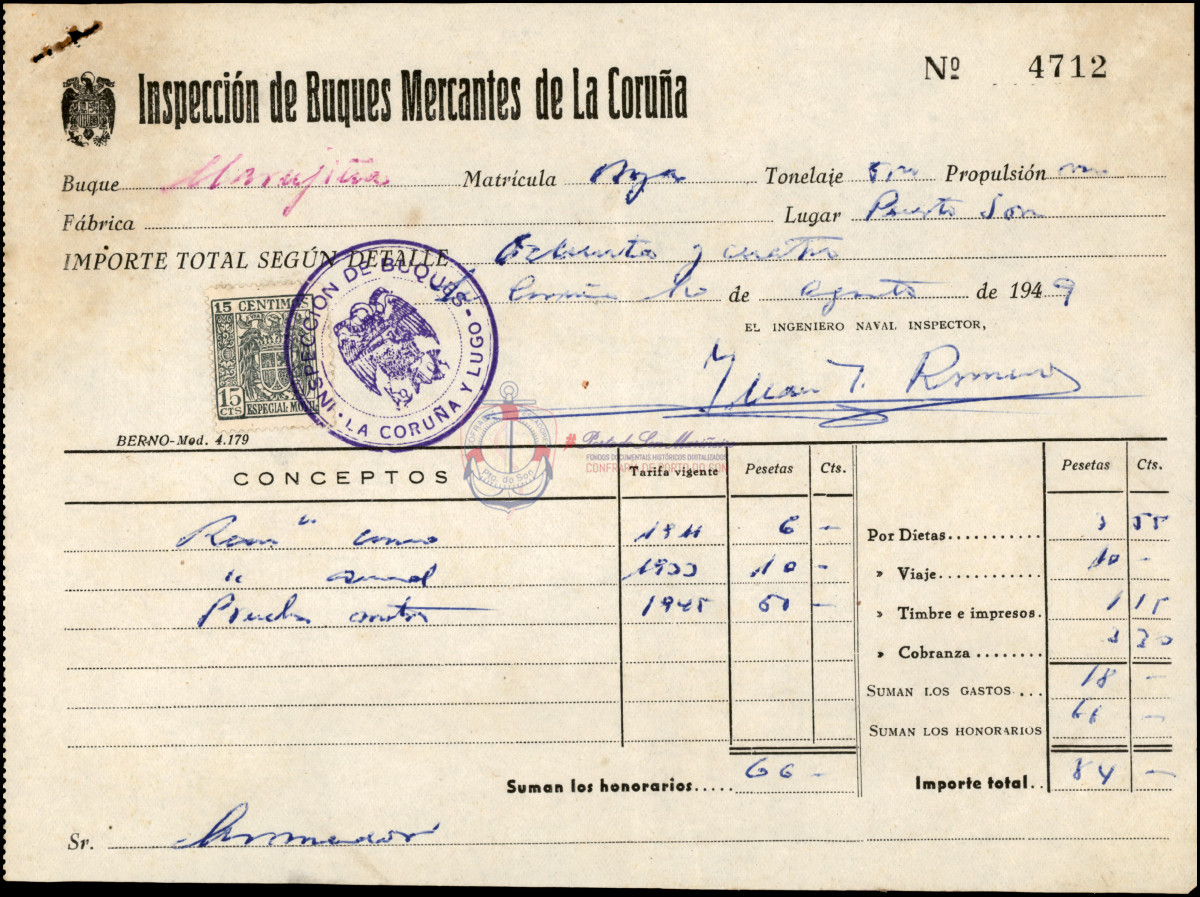 Nº 4712
Inspección de Buques Mercantes de La Coruña
Buque Marujiña Matrícula Tonelaje Propulsión
Fábrica Lugar Puerto Son
IMPORTE TOTAL SEGÚN DETALLE Ochenta y cuatro
Coruña 10 de agosto de 1949
EL INGENIERO NAVAL INSPECTOR,
Juan J. Romero
15 CENTIMOS
15 CTS ESPECIAL MOVIL
INSPECCIÓN DE BUQUES - LA CORUÑA Y LUGO
BERNO-Mod. 4.179
# Porto do Son Mariñeiro
FONDOS DOCUMENTAIS HISTÓRICOS DIXITALIZADOS
CONFRARÍA DE PORTO DO SON
Pto. do Son
CONCEPTOS Tarifa vigente Pesetas Cts. Pesetas Cts.
6 - Por Dietas
" 1933 10 - » Viaje 10 -
Prueba 1945 50 - » Timbre e impresos. 1 15
» Cobranza
SUMAN LOS GASTOS 18 -
SUMAN LOS HONORARIOS 66 -
Suman los honorarios 66 - Importe total 84 -
Sr. Armador